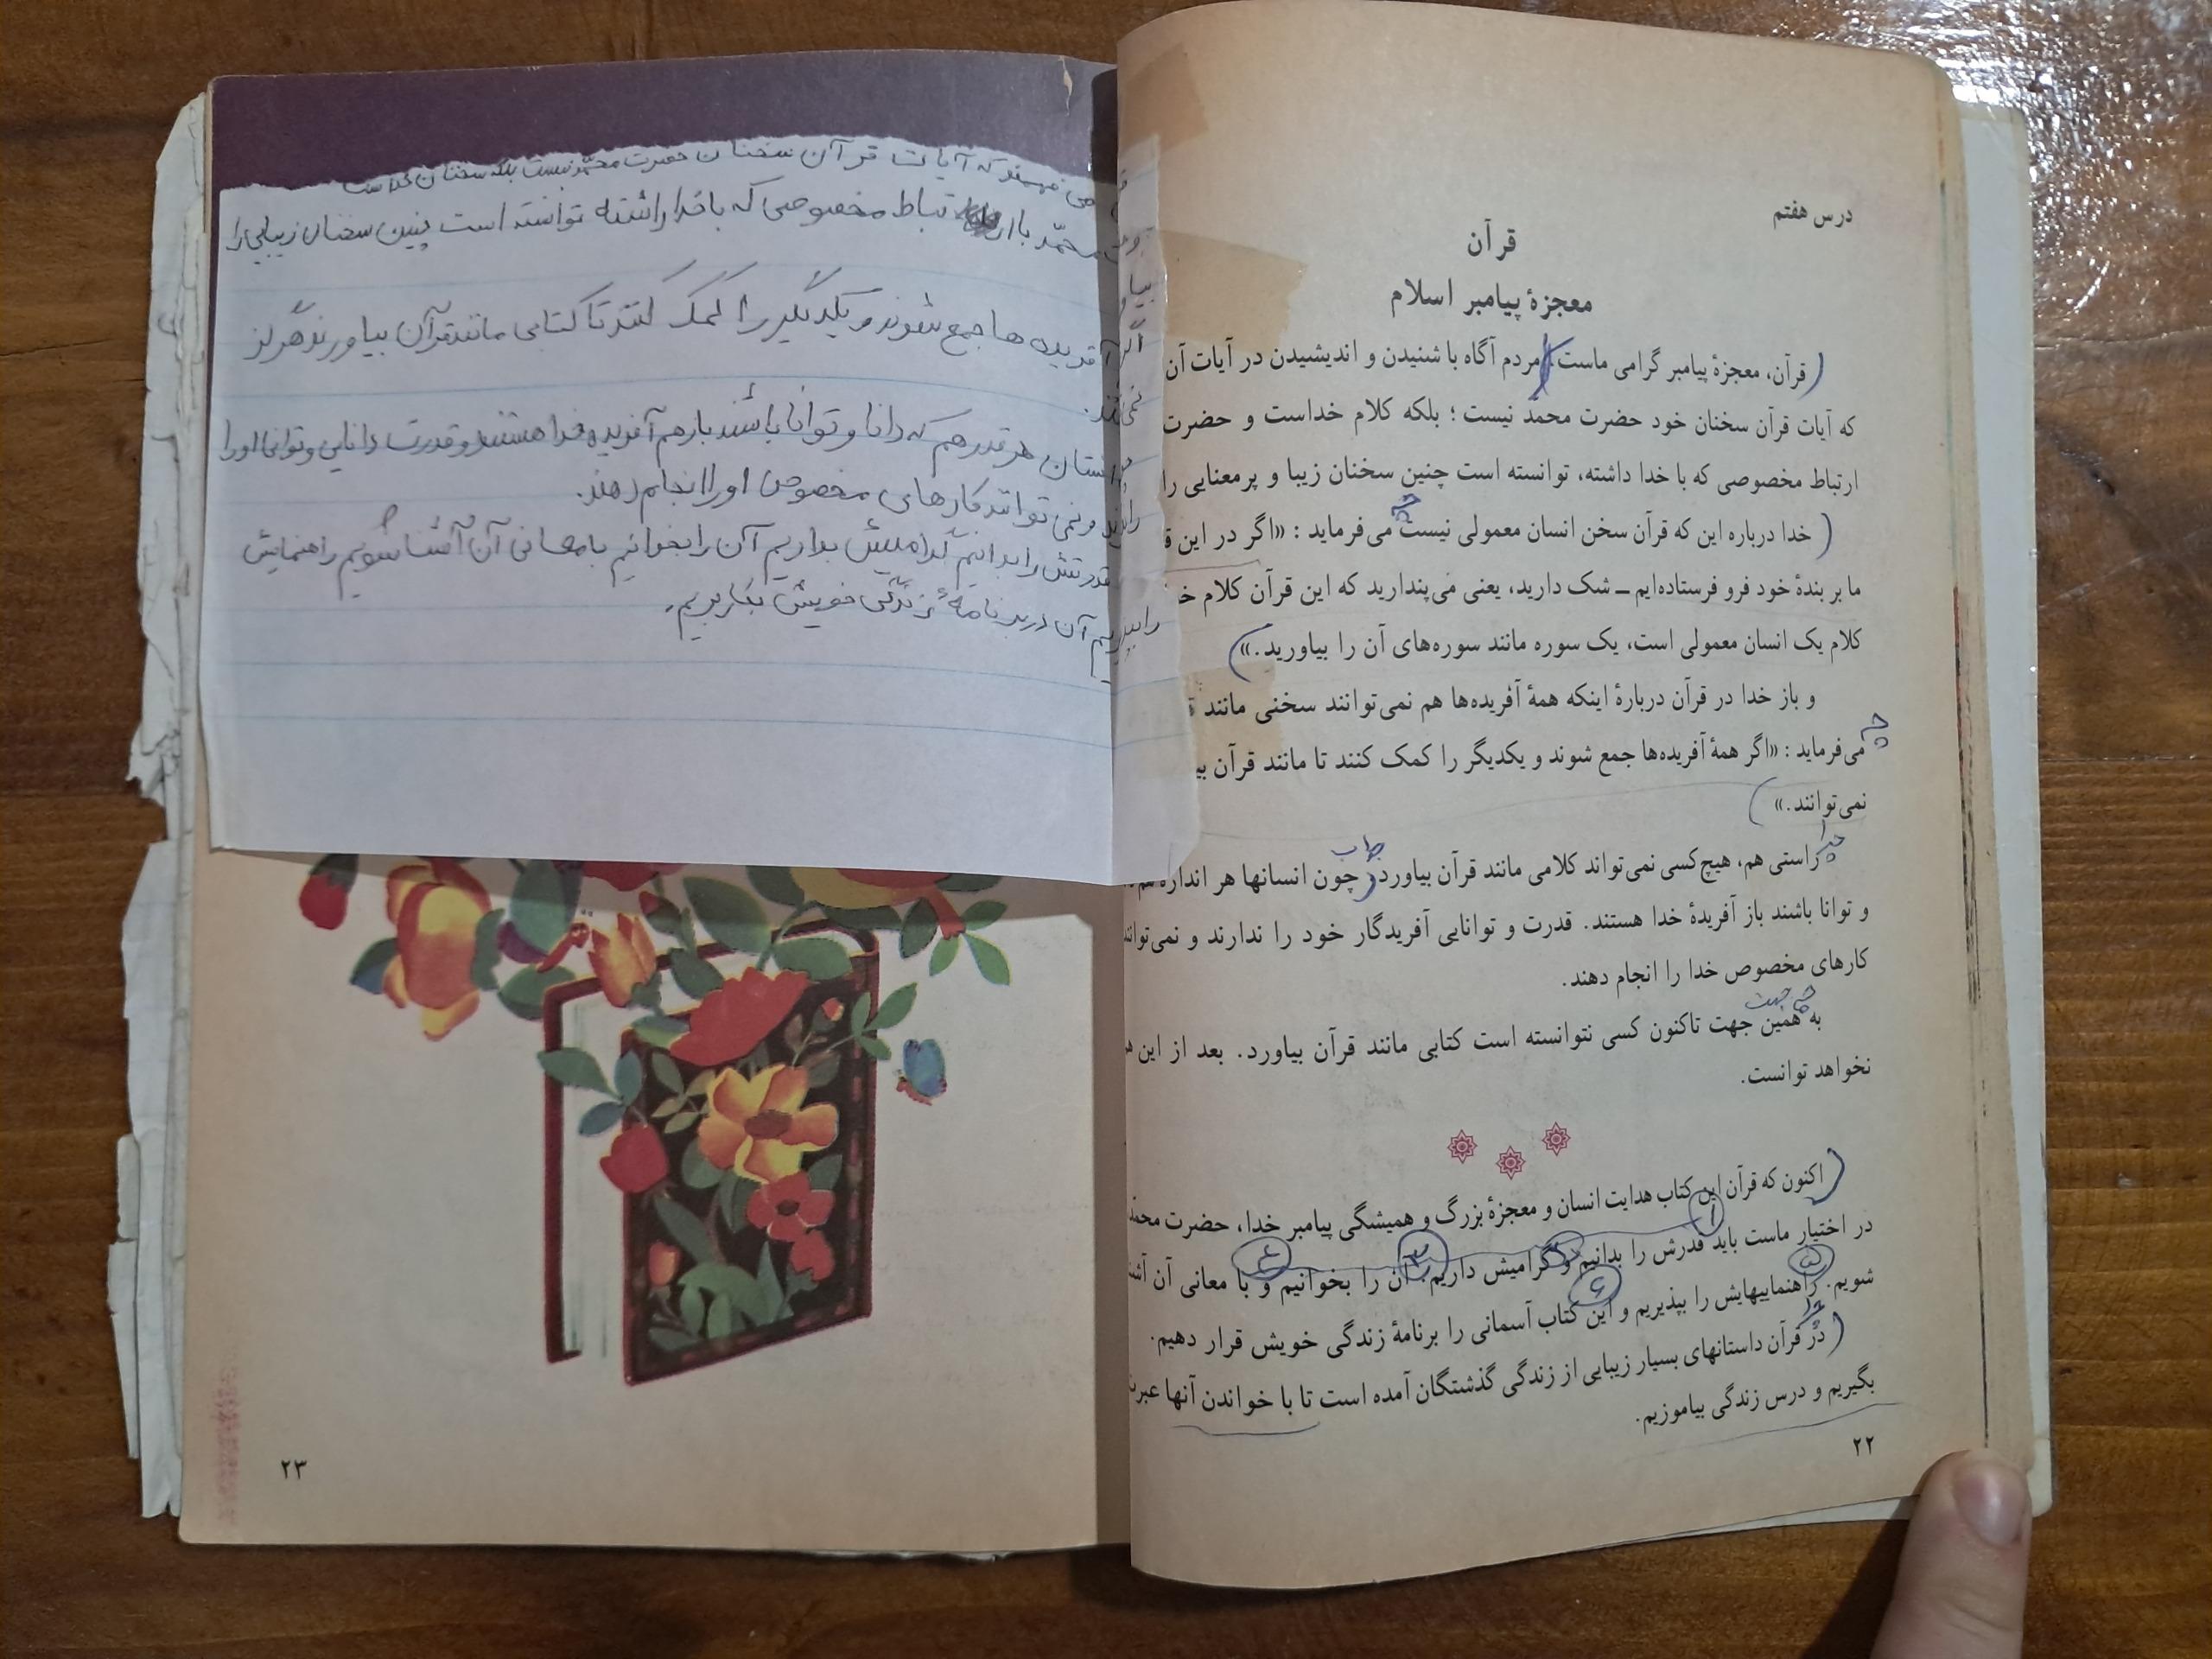 درس هفتم
قرآن
معجزهٔ پیامبر اسلام
قرآن، معجزهٔ پیامبر گرامی ماست. مردم آگاه با شنیدن و اندیشیدن در آیات آن
که آیات قرآن سخنان خود حضرت محمّد نیست ؛ بلکه کلام خداست و حضرت
ارتباط مخصوصی که با خدا داشته، توانسته است چنین سخنان زیبا و پرمعنایی را
خدا درباره این که قرآن سخن انسان معمولی نیست چه می‌فرماید : «اگر در این
ما بر بندهٔ خود فرو فرستاده‌ایم ــ شک دارید، یعنی می‌پندارید که این قرآن کلام
کلام یک انسان معمولی است، یک سوره مانند سوره‌های آن را بیاورید.»
و باز خدا در قرآن دربارهٔ اینکه همهٔ آفریده‌ها هم نمی‌توانند سخنی مانند
چه
می‌فرماید : «اگر همهٔ آفریده‌ها جمع شوند و یکدیگر را کمک کنند تا مانند قرآن
نمی‌توانند.»
چرا
جواب
راستی هم، هیچ‌کسی نمی‌تواند کلامی مانند قرآن بیاورد، چون انسانها هر اندازه
و توانا باشند باز آفریدهٔ خدا هستند. قدرت و توانایی آفریدگار خود را ندارند و نمی‌توانند
کارهای مخصوص خدا را انجام دهند.
چه جهت
به همین جهت تاکنون کسی نتوانسته است کتابی مانند قرآن بیاورد. بعد از این
نخواهد توانست.
اکنون که قرآن این کتاب هدایت انسان و معجزهٔ بزرگ و همیشگی پیامبر خدا، حضرت محمّد
در اختیار ماست باید قدرش را بدانیم و گرامیش داریم. آن را بخوانیم و با معانی آن
شویم. راهنماییهایش را بپذیریم و این کتاب آسمانی را برنامهٔ زندگی خویش قرار دهیم.
در قرآن داستانهای بسیار زیبایی از زندگی گذشتگان آمده است تا با خواندن آنها
بگیریم و درس زندگی بیاموزیم.
۲۲
که آیات قرآن سخنان حضرت محمّد نیست بلکه سخنان خداست
محمّد با ارتباط مخصوصی که با خدا داشته توانسته است چنین سخنان زیبایی را
بیاو
اگر آفریده ها جمع شوند و یکدیگر را کمک کنند تا کتابی مانند قرآن بیاورند هرگز
نمی
انسان هر قدر هم که دانا و توانا باشند باز هم آفریده خدا هستند و قدرت دانایی و توانا او را
و نمی توانند کارهای مخصوص او را انجام دهند.
قدرتش را بدانیم گرامیش بداریم آن را بخوانیم با معانی آن آشنا شویم راهنمایش
را بپذیریم آن در برنامهٔ زندگی خویش بکار بریم.
۲۳